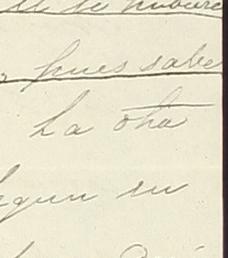 se hubiere
, pues sabe
La otra
segun su